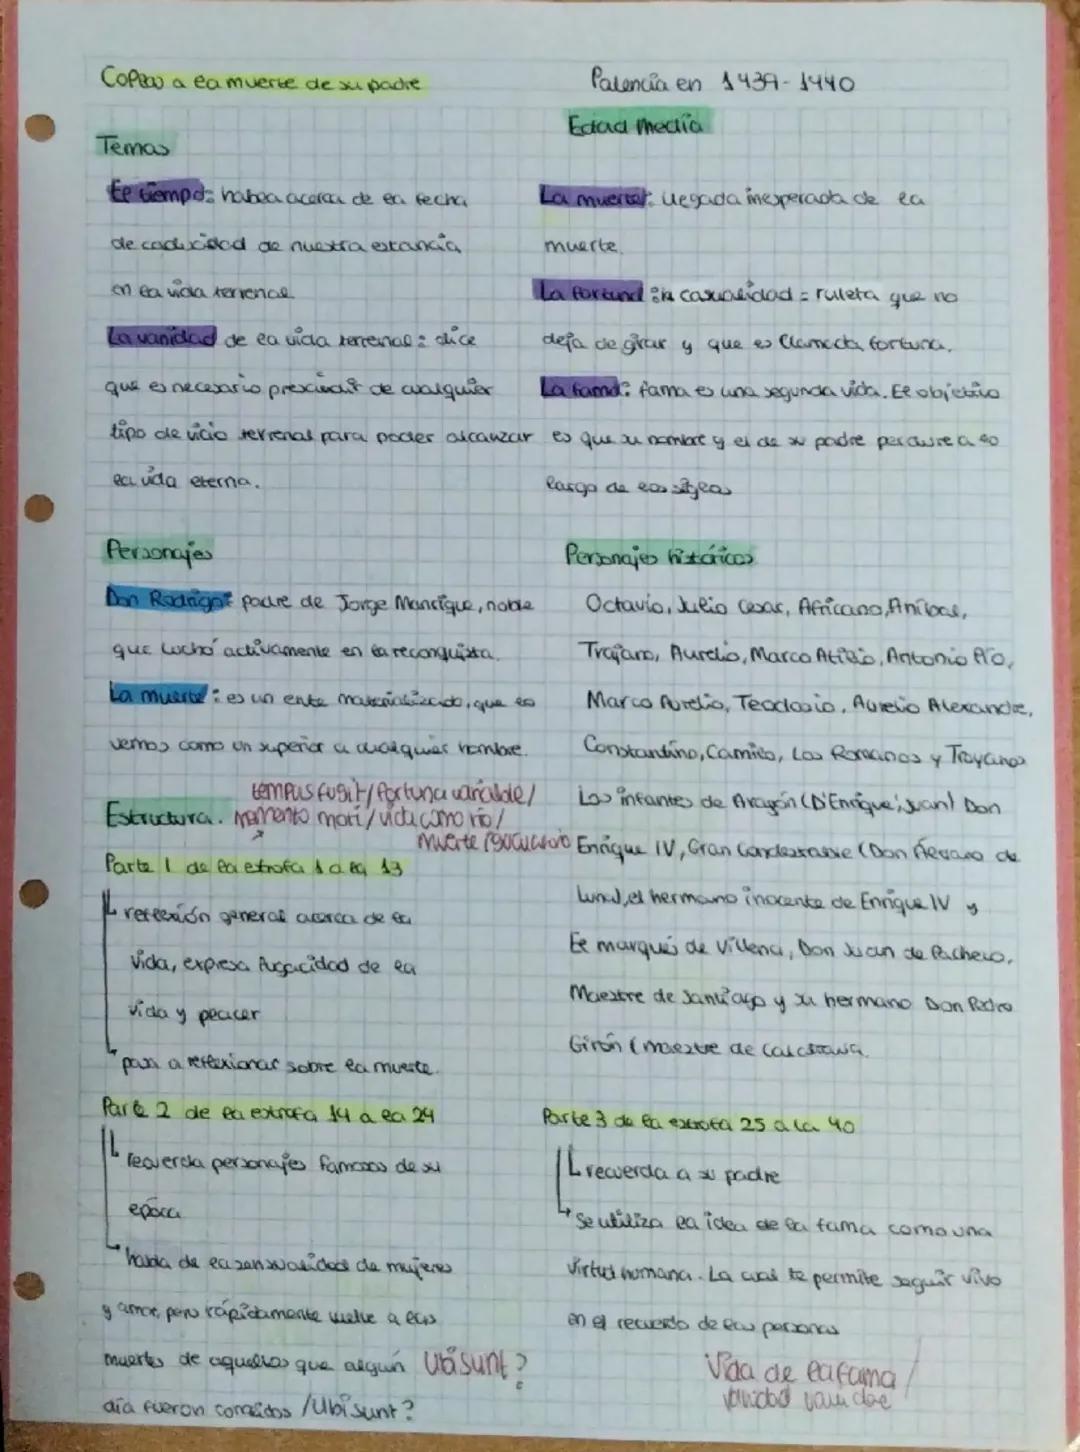 Coplas a la muerte de su padre
Palencia en 1439-1440
Edad Media
Temas
El tiempo: habla acerca de la fecha
de caducidad de nuestra estancia
en la vida terrenal
La vanidad de la vida terrenal: dice
que es necesario prescindir de cualquier
tipo de vicio terrenal para poder alcanzar
la vida eterna.
La muerte: llegada inesperada de la
muerte.
La fortuna: la casualidad = ruleta que no
deja de girar y que es llamada fortuna.
La fama: fama es una segunda vida. El objetivo
es que su nombre y el de su padre perdure a lo
largo de los siglos
Personajes
Don Rodrigo: padre de Jorge Manrique, noble
que luchó activamente en la reconquista.
La muerte: es un ente materializado, que lo
vemos como un superior a cualquier hombre.
Personajes históricos
Octavio, Julio Cesar, Africano, Aníbal,
Trajano, Aurelio, Marco Atilio, Antonio Pío,
Marco Aurelio, Teodosio, Aurelio Alexandre,
Constantino, Camilo, Los Romanos y Troyanos
Los infantes de Aragón (D'Enrique, Juan) Don
Enrique IV, Gran Condestable (Don Álvaro de
Luna), el hermano inocente de Enrique IV y
El marqués de Villena, Don Juan de Pacheco,
Maestre de Santiago y su hermano Don Pedro
Girón (maestre de Calatrava.
Estructura.
tempus fugit/fortuna variable/
momento mori/vida como río/
muerte igualatoria
Parte 1 de la estrofa 1 a la 13
reflexión general acerca de la
vida, expresa fugacidad de la
vida y placer
pasa a reflexionar sobre la muerte.
Parte 2 de la estrofa 14 a la 24
recuerda personajes famosos de su
época
habla de la sensualidad de mujeres
y amor, pero rápidamente vuelve a las
muertes de aquellos que algún Ubi sunt?
día fueron conocidos /Ubi sunt?
Parte 3 de la estrofa 25 a la 40
recuerda a su padre
Se utiliza la idea de la fama como una
virtud humana. La cual te permite seguir vivo
en el recuerdo de las personas
Vida de la fama/
vanidad